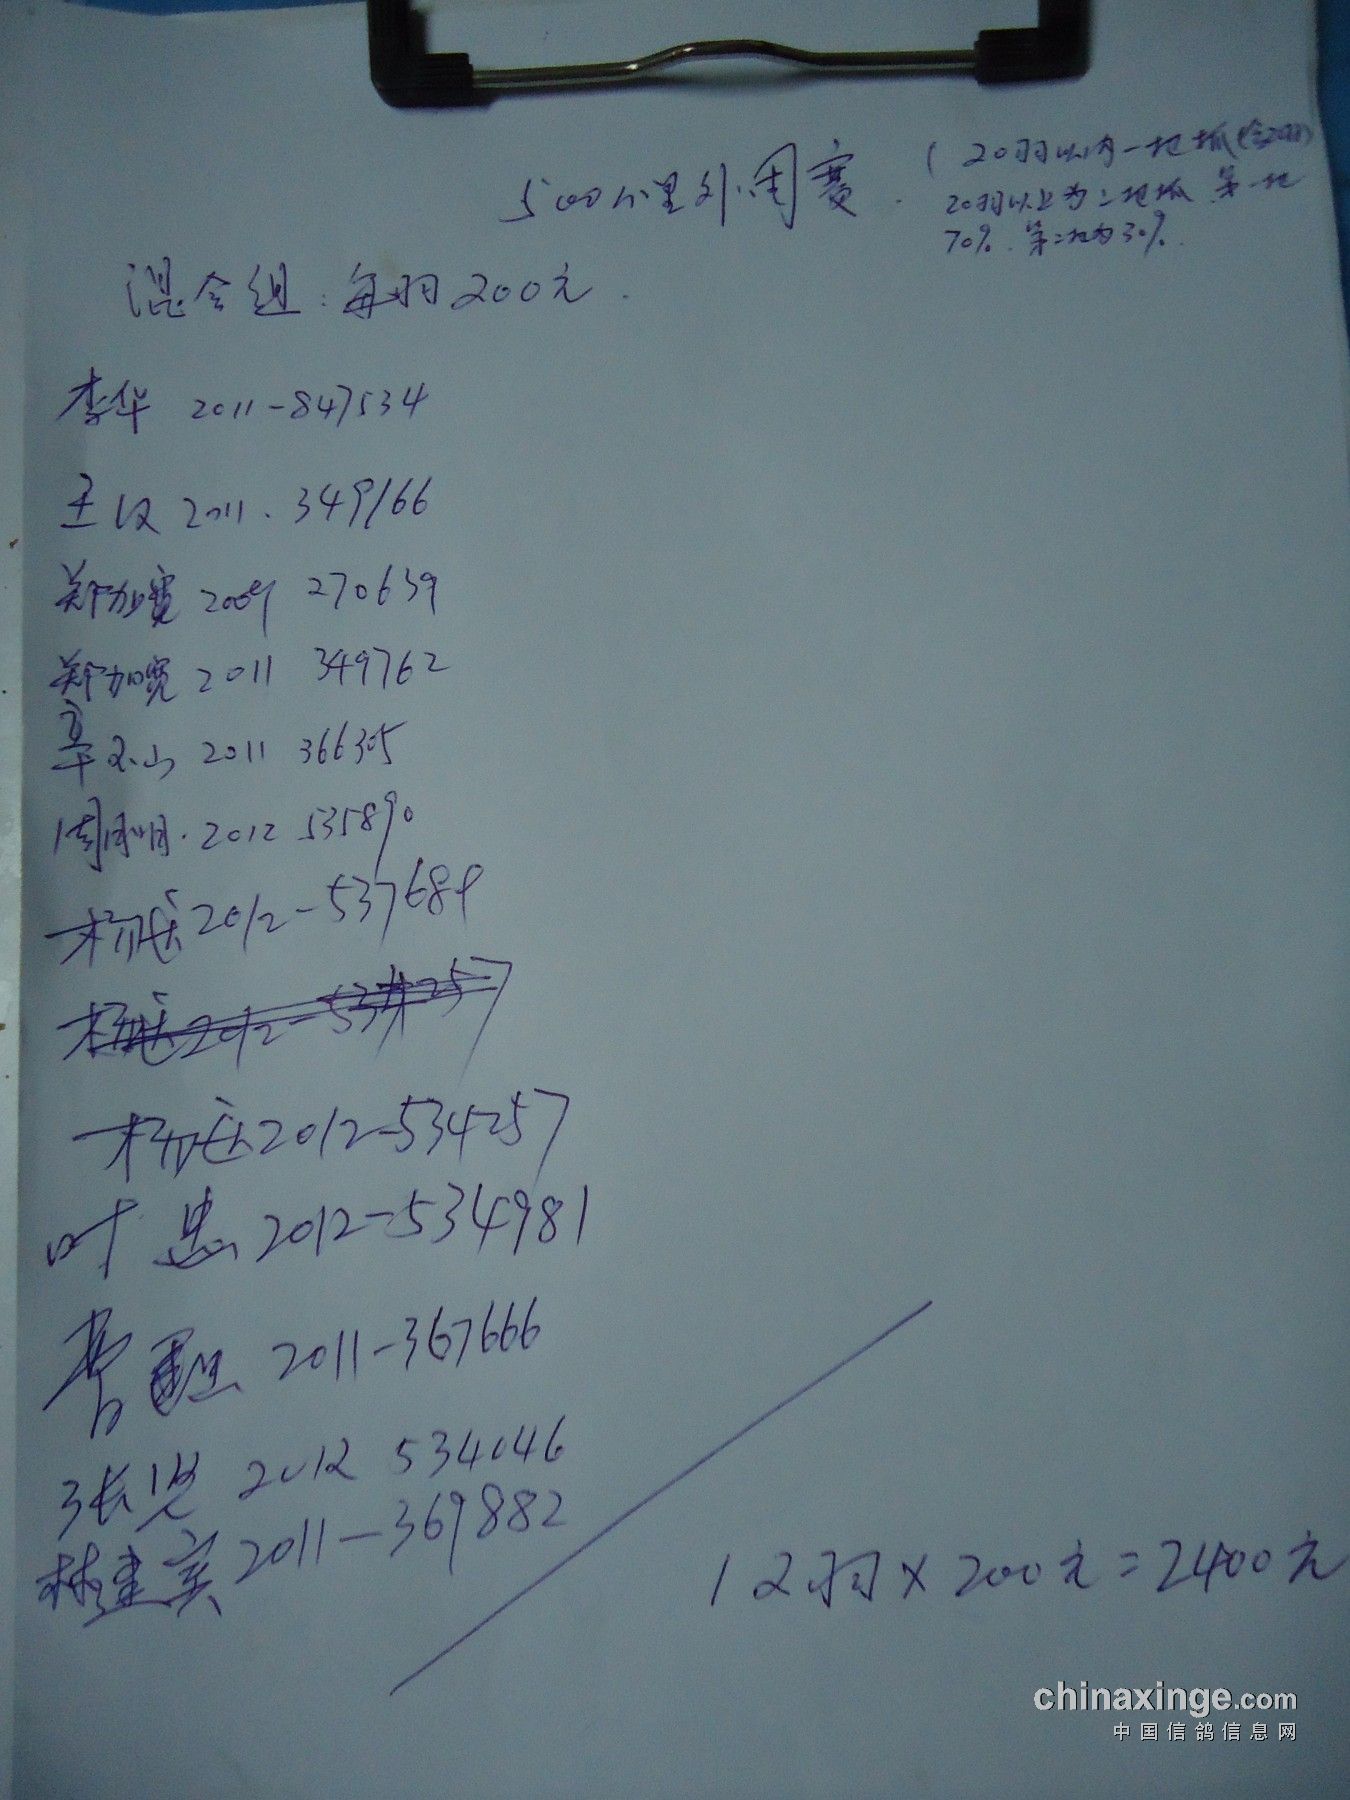 500公里外围赛.
(20羽以内一地抓(含20羽)
20羽以上为二地抓 第一地
70%. 第二地为30%.
混合组:每羽200元.
李华 2011-847534
王 2011.349166
郑加宽 2009 270639
郑加宽 2011 349762
章玉山 2011 366305
周明.2012 535890
杨 2012-537689
杨 2012-534257
杨 2012-534257
叶忠 2012-534981
曹 2011-367666
张 2012 534046
林建宾 2011-369882
12羽×200元=2400元
chinaxinge.com
中国信鸽信息网